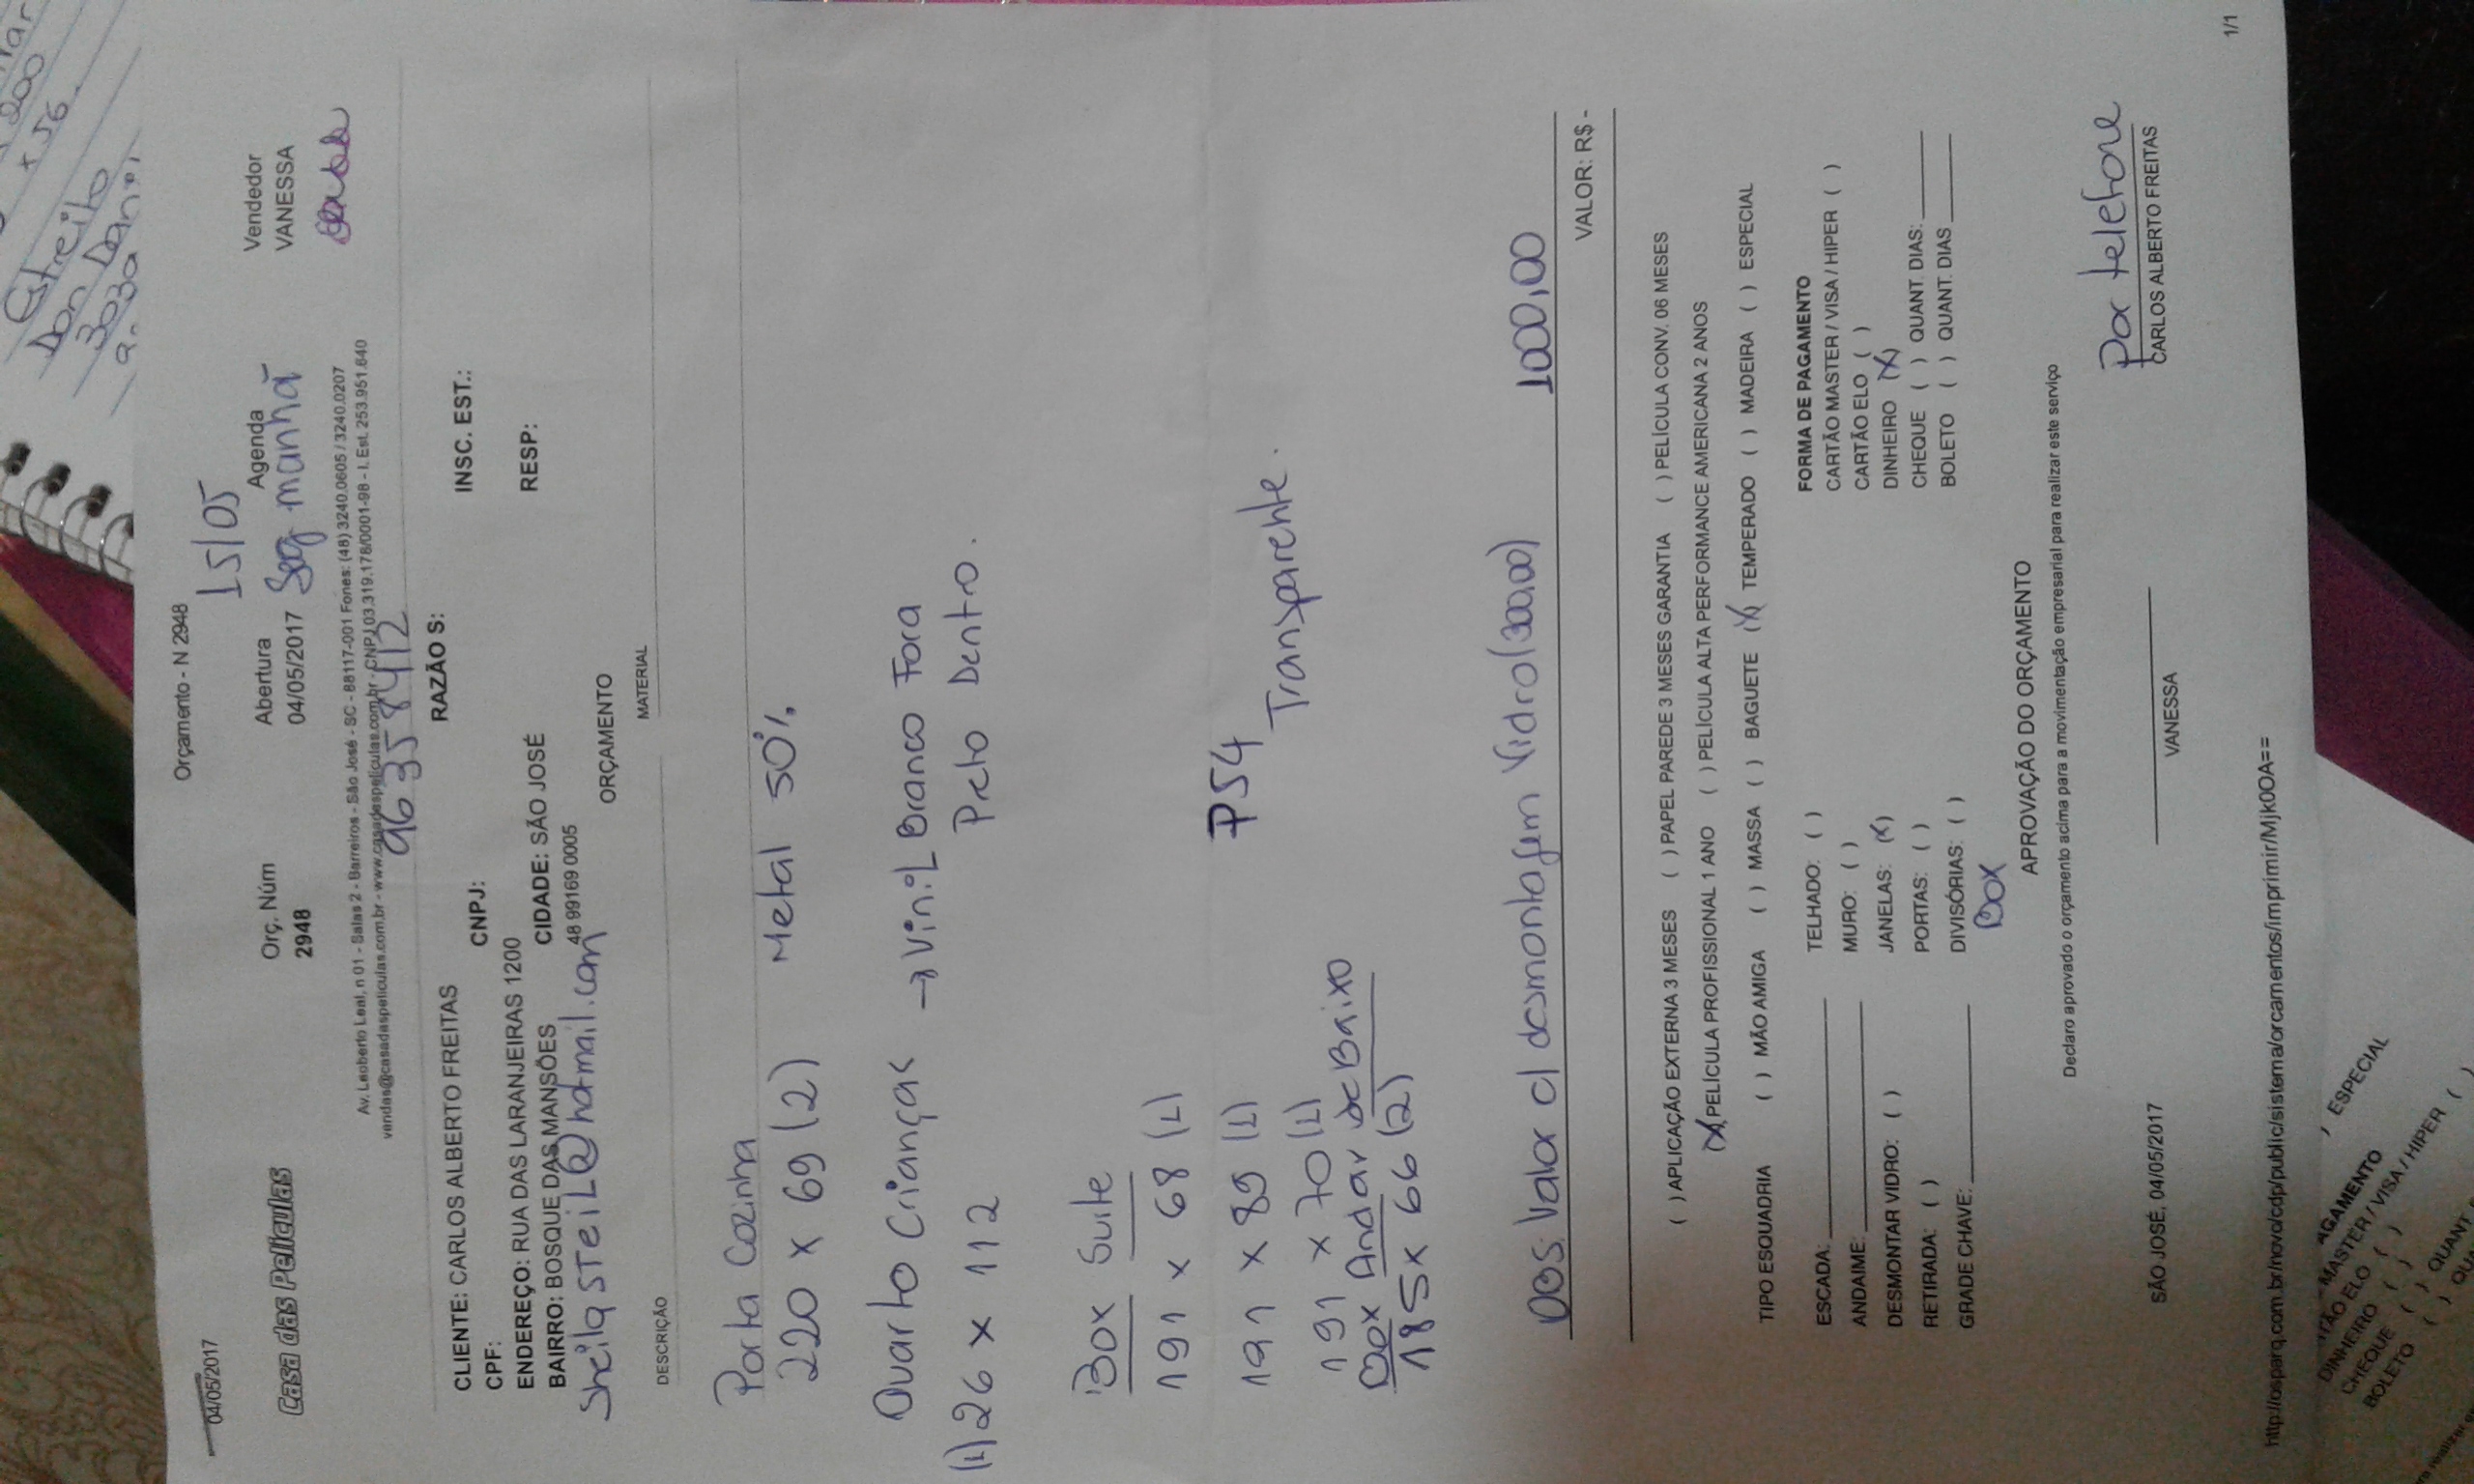 04/05/2017
Orçamento - N 2948
15/05
Casa das Películas
Orç. Núm
2948
Abertura
04/05/2017
Agenda
Seg manhã
Vendedor
VANESSA
Av. Leoberto Leal, n 01 - Salas 2 - Barreiros - São José - SC - 88117-001 Fones: (48) 3240.0605 / 3240.0207
vendas@casadaspeliculas.com.br - www.casadaspeliculas.com.br - CNPJ 03.319.178/0001-98 - I. Est. 253.951.640
96358412
CLIENTE: CARLOS ALBERTO FREITAS
RAZÃO S:
CPF:
CNPJ:
INSC. EST.:
ENDEREÇO: RUA DAS LARANJEIRAS 1200
BAIRRO: BOSQUE DAS MANSÕES
CIDADE: SÃO JOSÉ
RESP:
48 99169 0005
SheilaSTeiL@hotmail.com
ORÇAMENTO
DESCRIÇÃO
MATERIAL
Porta Cozinha
220 x 69 (2) Metal 50%
Quarto Crianças → Vinil Branco Fora
(1) 126 x 112 Preto Dentro.
Box Suite
191 x 68 (1)
191 x 89 (1) P54
191 x 70 (1) Transparente.
Box Andar de Baixo
185 x 66 (2)
OBS: Valor c/ desmontagem Vidro (300,00) 1000,00
VALOR: R$ -
( ) APLICAÇÃO EXTERNA 3 MESES ( ) PAPEL PAREDE 3 MESES GARANTIA ( ) PELÍCULA CONV. 06 MESES
(X) PELÍCULA PROFISSIONAL 1 ANO ( ) PELÍCULA ALTA PERFORMANCE AMERICANA 2 ANOS
TIPO ESQUADRIA ( ) MÃO AMIGA ( ) MASSA ( ) BAGUETE (X) TEMPERADO ( ) MADEIRA ( ) ESPECIAL
ESCADA:
ANDAIME:
DESMONTAR VIDRO: ( )
RETIRADA: ( )
GRADE CHAVE:
TELHADO: ( )
MURO: ( )
JANELAS: (X)
PORTAS: ( )
DIVISÓRIAS: ( )
BOX
FORMA DE PAGAMENTO
CARTÃO MASTER / VISA / HIPER ( )
CARTÃO ELO ( )
DINHEIRO (X)
CHEQUE ( ) QUANT. DIAS:
BOLETO ( ) QUANT. DIAS
APROVAÇÃO DO ORÇAMENTO
Declaro aprovado o orçamento acima para a movimentação empresarial para realizar este serviço
SÃO JOSÉ, 04/05/2017
VANESSA
Por telefone
CARLOS ALBERTO FREITAS
http://osparq.com.br/novo/cdp/public/sistema/orcamentos/imprimir/Mjk0OA==
1/1
200
x 56
Estreito
Dom Daniel
303a
ESPECIAL
AGAMENTO
MASTER / VISA / HIPER ( )
TÃO ELO ( )
DINHEIRO ( )
CHEQUE ( ) QUANT
BOLETO ( )